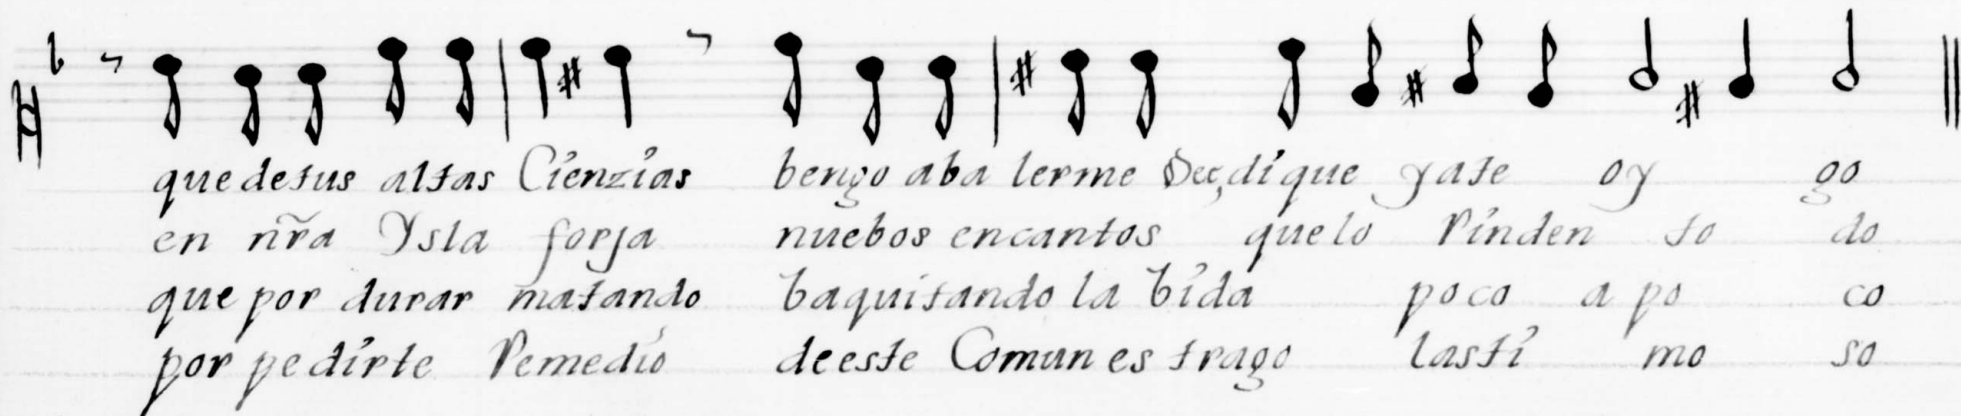 que de tus altas Cienzias bengo aba lerme Deç, di que ya te oy go
en nr̃a Ysla forja nuebos encantos que lo Rinden to do
que por durar matando ba quitando la bida poco a po co
por pedirte Remedio de este Comun es trago lasti mo so